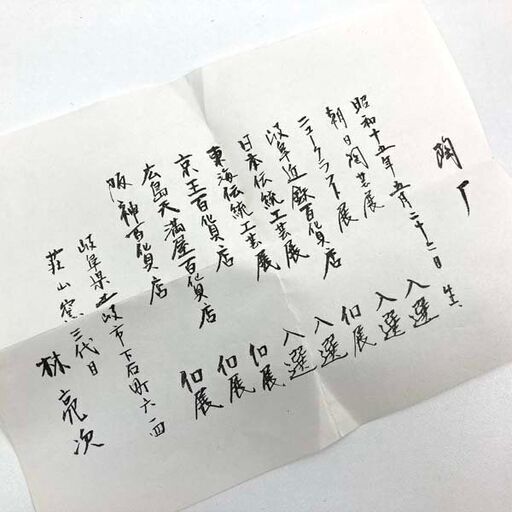 陶歴
昭和十五年五月二十二日生
朝日陶芸展 入選
ニュークラフト展 入選
岐阜近鉄百貨店 個展
日本伝統工芸展 入選
東海伝統工芸展 入選
京王百貨店 個展
広島天満屋百貨店 個展
阪神百貨店 個展
岐阜県土岐市下石町六一四
荘山窯三代目
林亮次